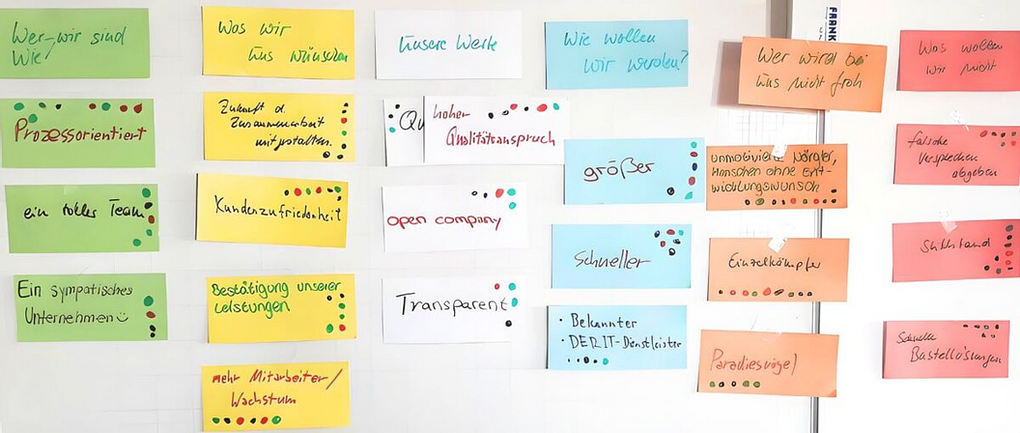 Wer wir sind
Wie,
Prozessorientiert
ein tolles Team
Ein sympatisches
Unternehmen
Was wir
uns wünschen
Zukunft d.
Zusammenarbeit
mitgestalten.
Kundenzufriedenheit
Bestätigung unserer
Leistungen
mehr Mitarbeiter/
Wachstum
Unsere Werte
Qu
hoher
Qualitätsanspruch
open company
Transparent
Wie wollen
wir werden?
größer
Schneller
• Bekannter
• DER IT-Dienstleister
FRANK
Wer wird bei
uns nicht froh
unmotivierte Nörgler,
Menschen ohne Ent-
wicklungswunsch
Einzelkämpfer
Paradiesvögel
Was wollen
wir nicht
falsche
Versprechen
abgeben
Stillstand
Schnelle
Bastellösungen